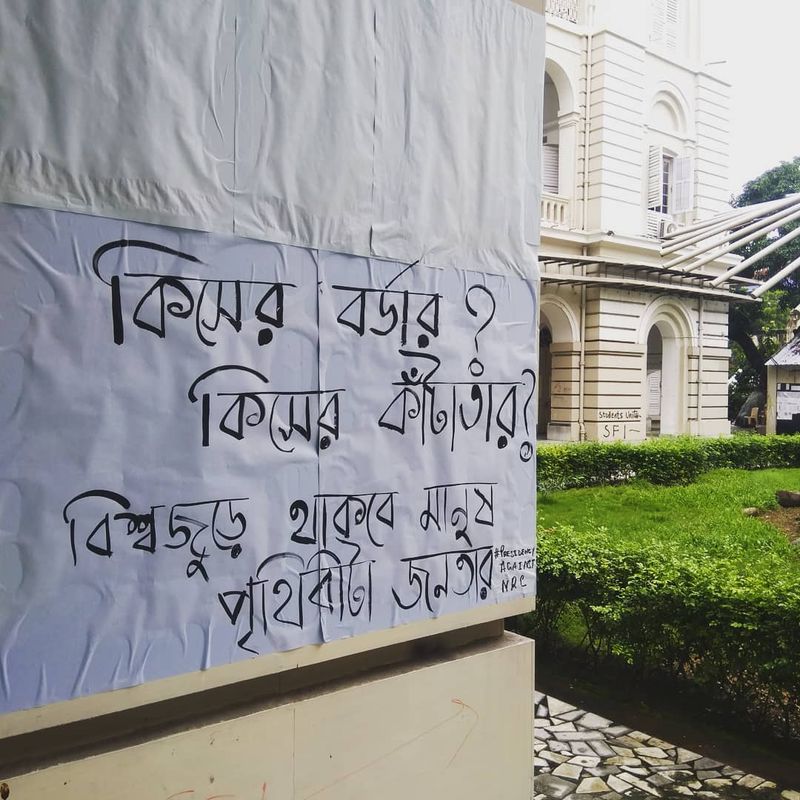 কিসের বর্ডার ?
কিসের কাঁটাতার?
বিশ্বজুড়ে থাকবে মানুষ
পৃথিবীটা জনতার
#PRESIDENCY
AGAINST
NRC
Students Unite
SFI